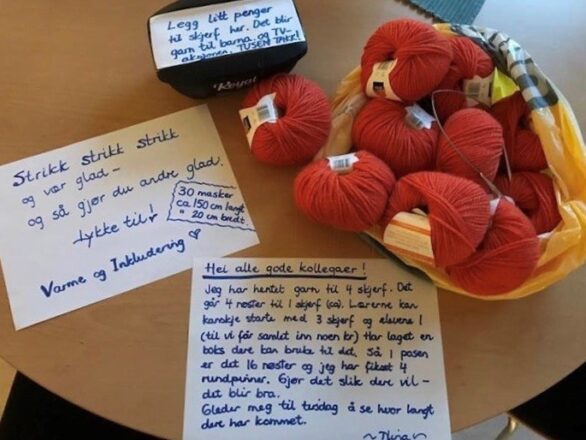 Legg litt penger
til skjerf her. Det blir
garn til barna og TV-
aksjonen. TUSEN TAKK!
Royal
Strikk strikk strikk
og vær glad -
og så gjør du andre glad.
Lykke til!
30 masker
ca. 150 cm langt
" 20 cm bredt
Varme og Inkludering
Hei alle gode kollegaer!
Jeg har hentet garn til 4 skjerf. Det
går 4 nøster til 1 skjerf (ca). Lærerne kan
kanskje starte med 3 skjerf og elevene 1
(til vi får samlet inn noen kr) Har laget en
boks dere kan bruke til det. Så 1 posen
er det 16 nøster og jeg har fikset 4
rundpinner. Gjør det slik dere vil -
det blir bra.
Gleder meg til tirsdag å se hvor langt
dere har kommet.